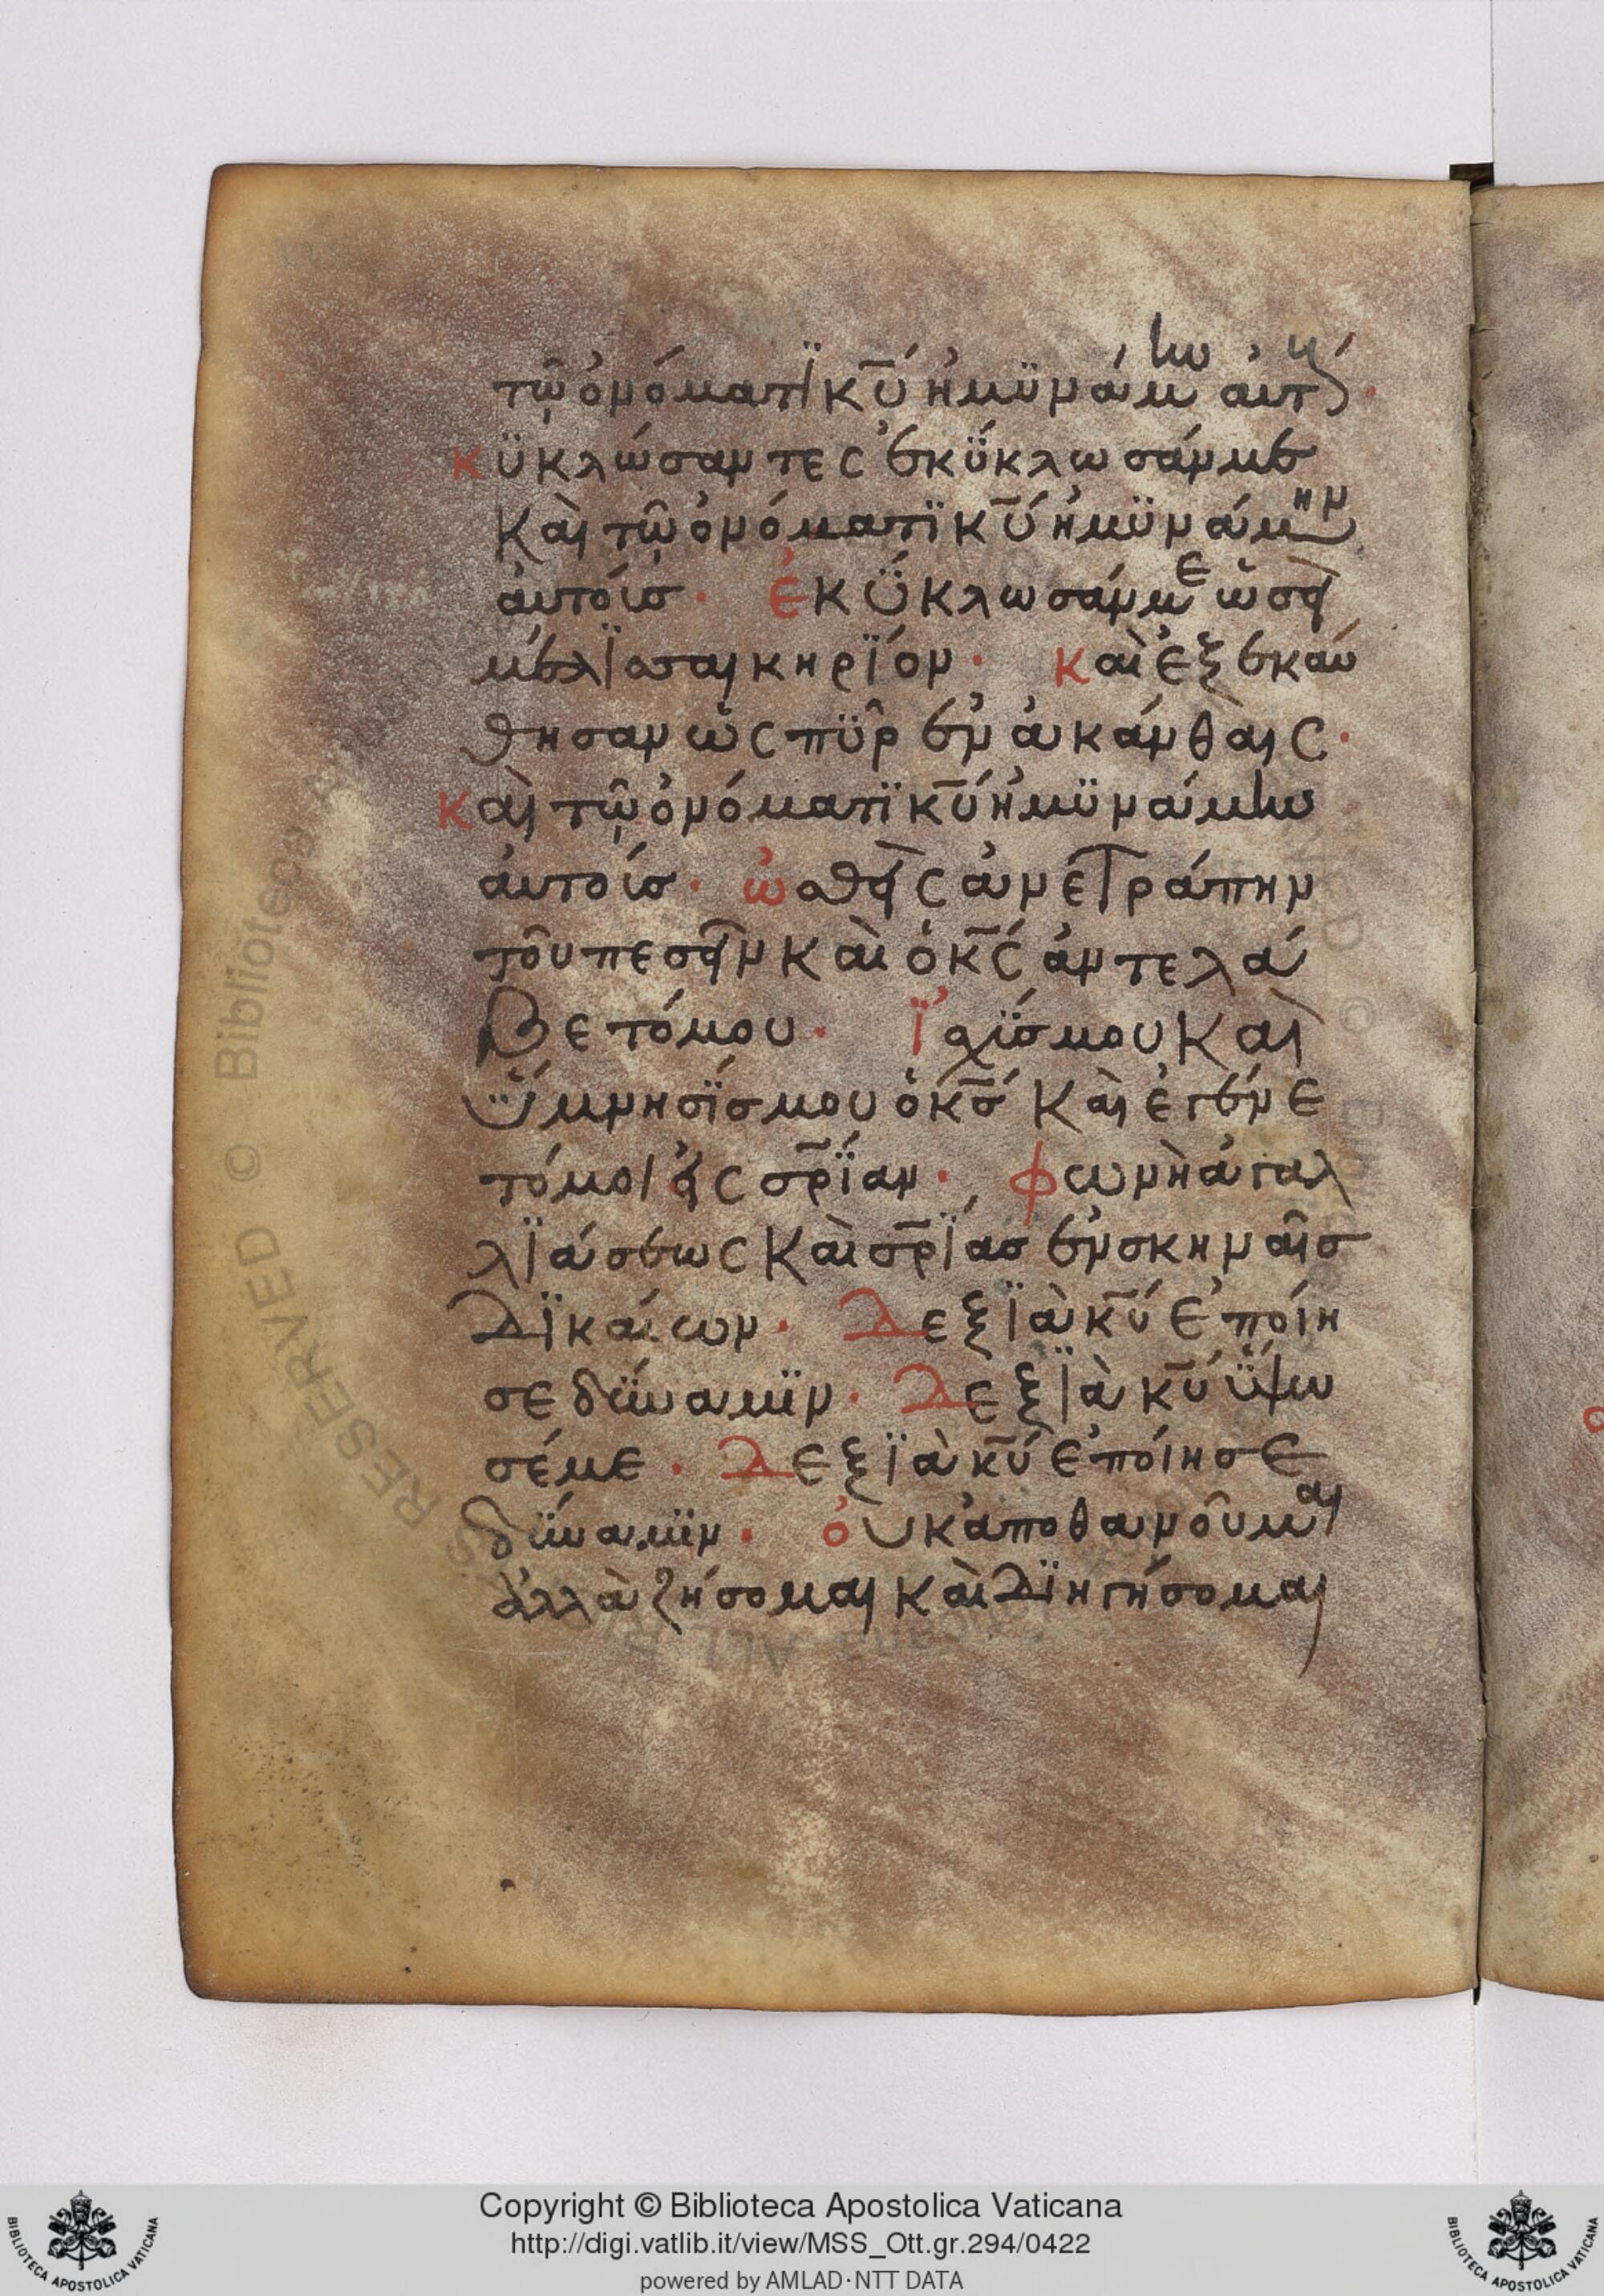 τῶ ὀνόματϊ κ̅ύ ἠμϋνάμην ἀυτούς·
κϋκλώσαντες ἐκΰκλωσάνμε
Καὶ τῶ ὀνόματϊ κ̅ύ ἠμϋνάμην
ἀυτούσ· ἐκΰκλωσάνμε ὡσεὶ
μέλϊσσαι κηρΐον· καὶ ἐξεκαύ
θησαν ὡς πϋ̂ρ ἐν ἀκάνθαις·
καὶ τῶ ὀνόματϊ κ̅ύ ἠμϋνάμην
ἀυτούσ· ὠσθεὶς ἀνετράπην
τοῦ πεσεῖν Καὶ ὁ κ̅ς́ ἀντελά
Βετό μου· ϊσχΰσ μου Καὶ
ϋ̔́μνησΐσ μου ὁ κ̅σ́ Καὶ ἐγένε
τό μοι εἰς σ̅ρΐαν· φωνὴ ἀγαλ
λϊάσεως Καὶ σ̅ρΐασ ἐν σκηναῖσ
Δϊκαίων· Δεξϊὰ κ̅ύ ἐποίη
σε δΰναμϊν· Δεξϊὰ κ̅ύ ϋ̔́ψω
σέ με· Δεξϊὰ κ̅ύ ἐποίησε
δΰναμϊν· ὀυκ ἀποθανοῦμαι
ἀλλὰ ζήσομαι Καὶ Δϊηγήσομαι
Copyright © Biblioteca Apostolica Vaticana
http://digi.vatlib.it/view/MSS_Ott.gr.294/0422
powered by AMLAD·NTT DATA
BIBLIOTECA APOSTOLICA VATICANA
BIBLIOTECA APOSTOLICA VATICANA